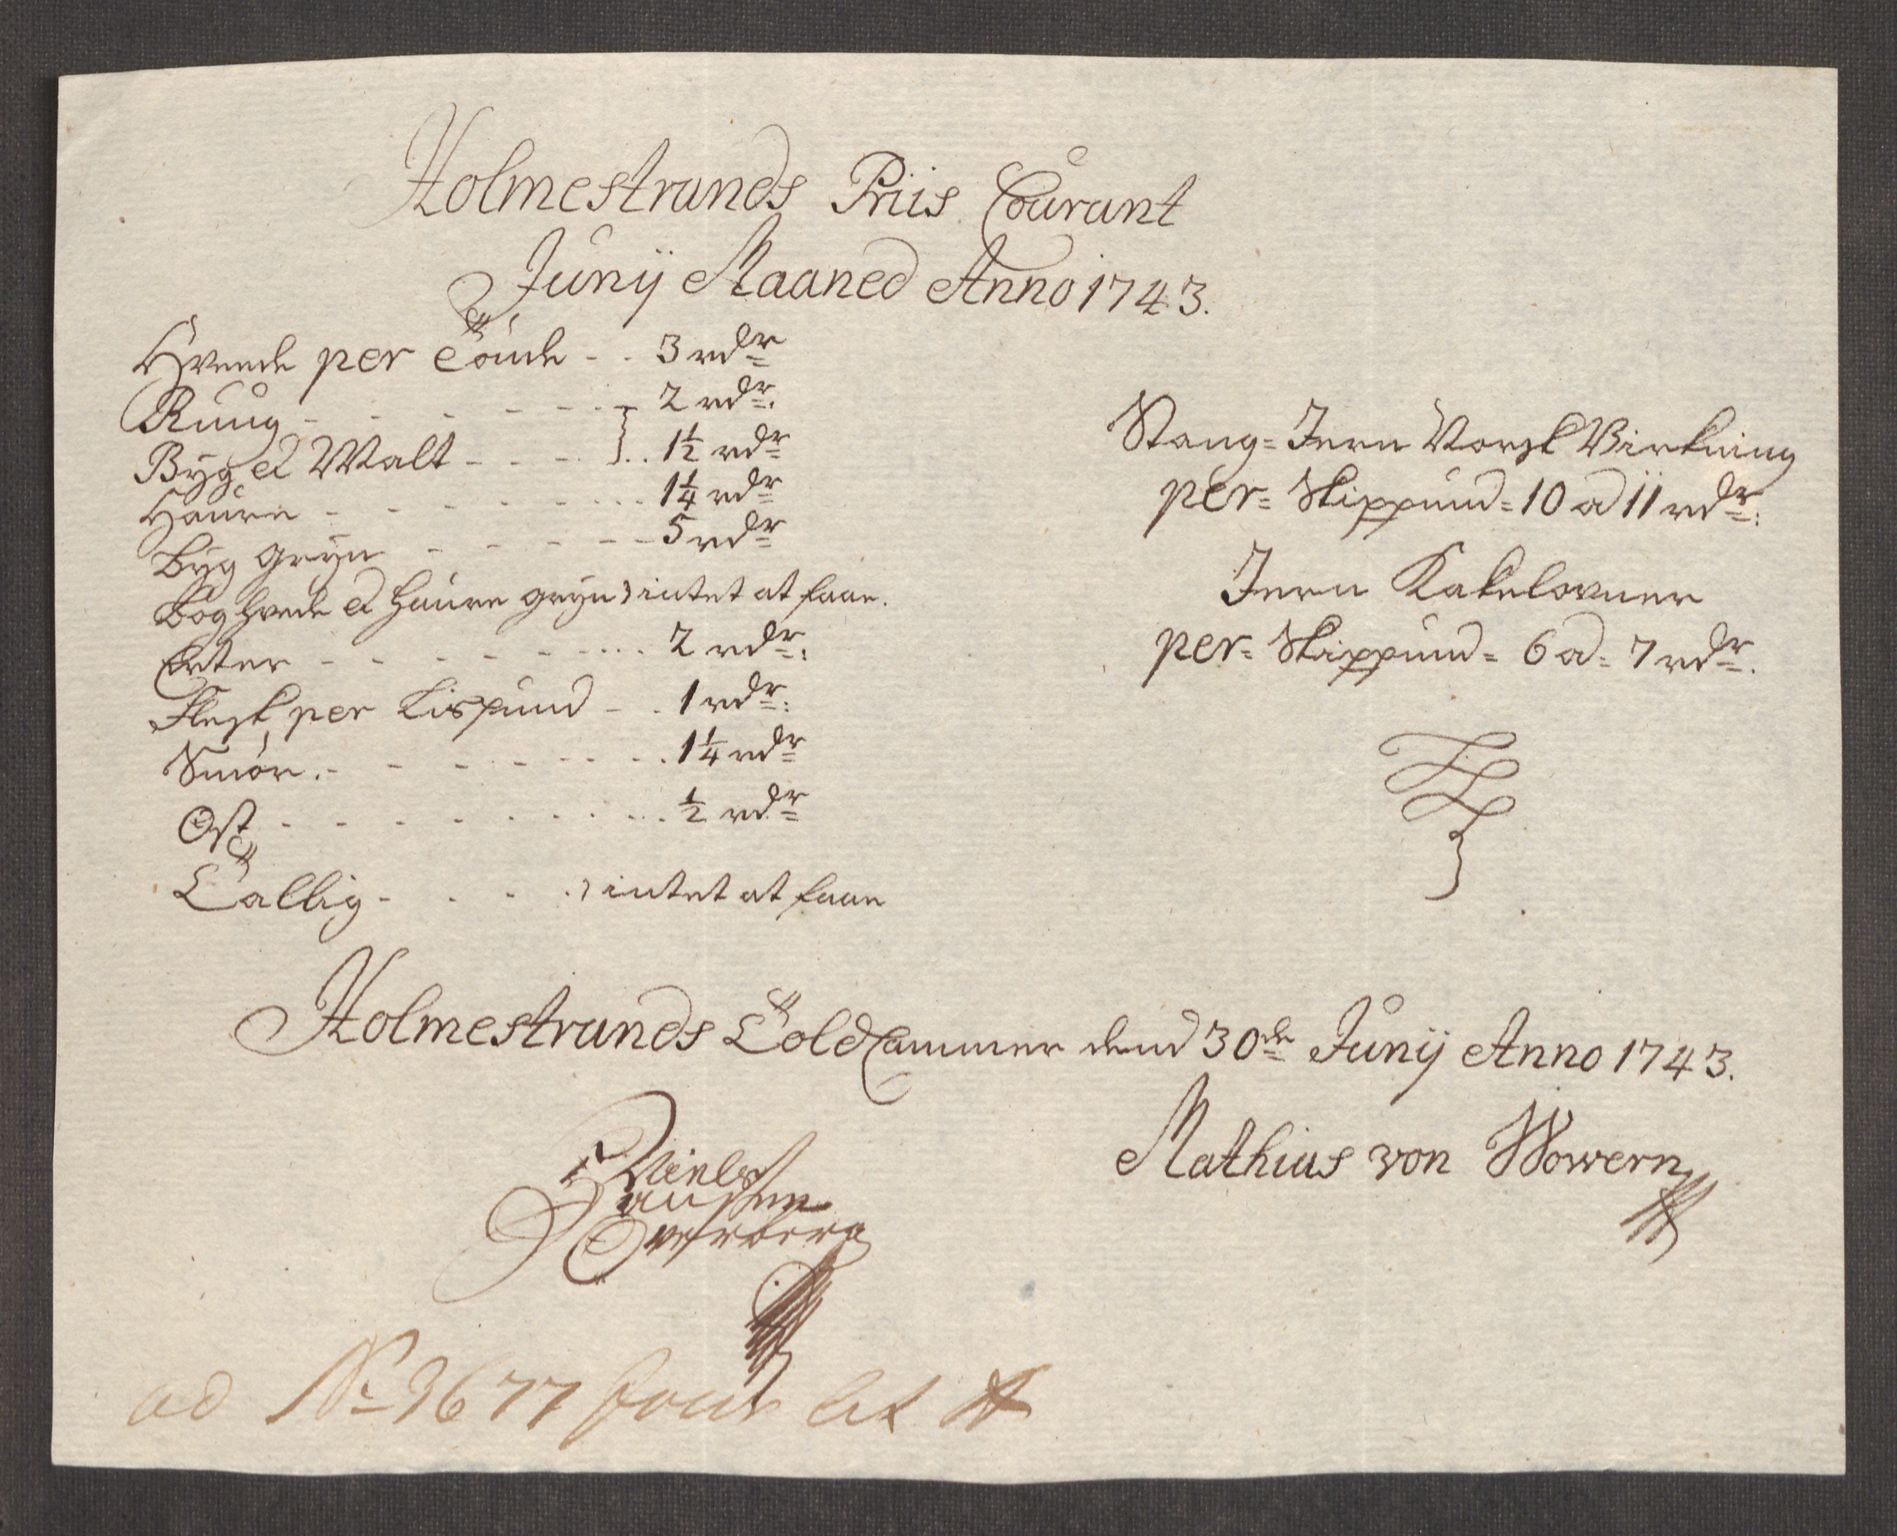 Holmestrands Priis Courant
Junij Maaned Anno 1743.
Hveede per Tönde - - 3 rdr
Ruug - - - - - - - 2 rdr.
Byg et Malt - - - - 1½ rdr
Haure - - - - - - - 1¼ rdr
Byg gryn - - - - - 5 rdr
Boghvede et haure gryn intet at faae.
Erter - - - - - - - 2 rdr.
Flesk per Lispund - - 1 rdr.
Smör - - - - - - - 1¼ rdr
Ost - - - - - - - ½ rdr
Tallig - - - - intet at faae
Stang= Jern Norsk Virkning
per= Skippund= 10 a 11 rdr.
Jern Kakelovner
per= Skippund= 6 a= 7 rdr.
Holmestrands Told Cammer dend 30de Junij Anno 1743.
Niels
Hansen
Overberg
Mathias von Wowern
ad No 3677 Lit A